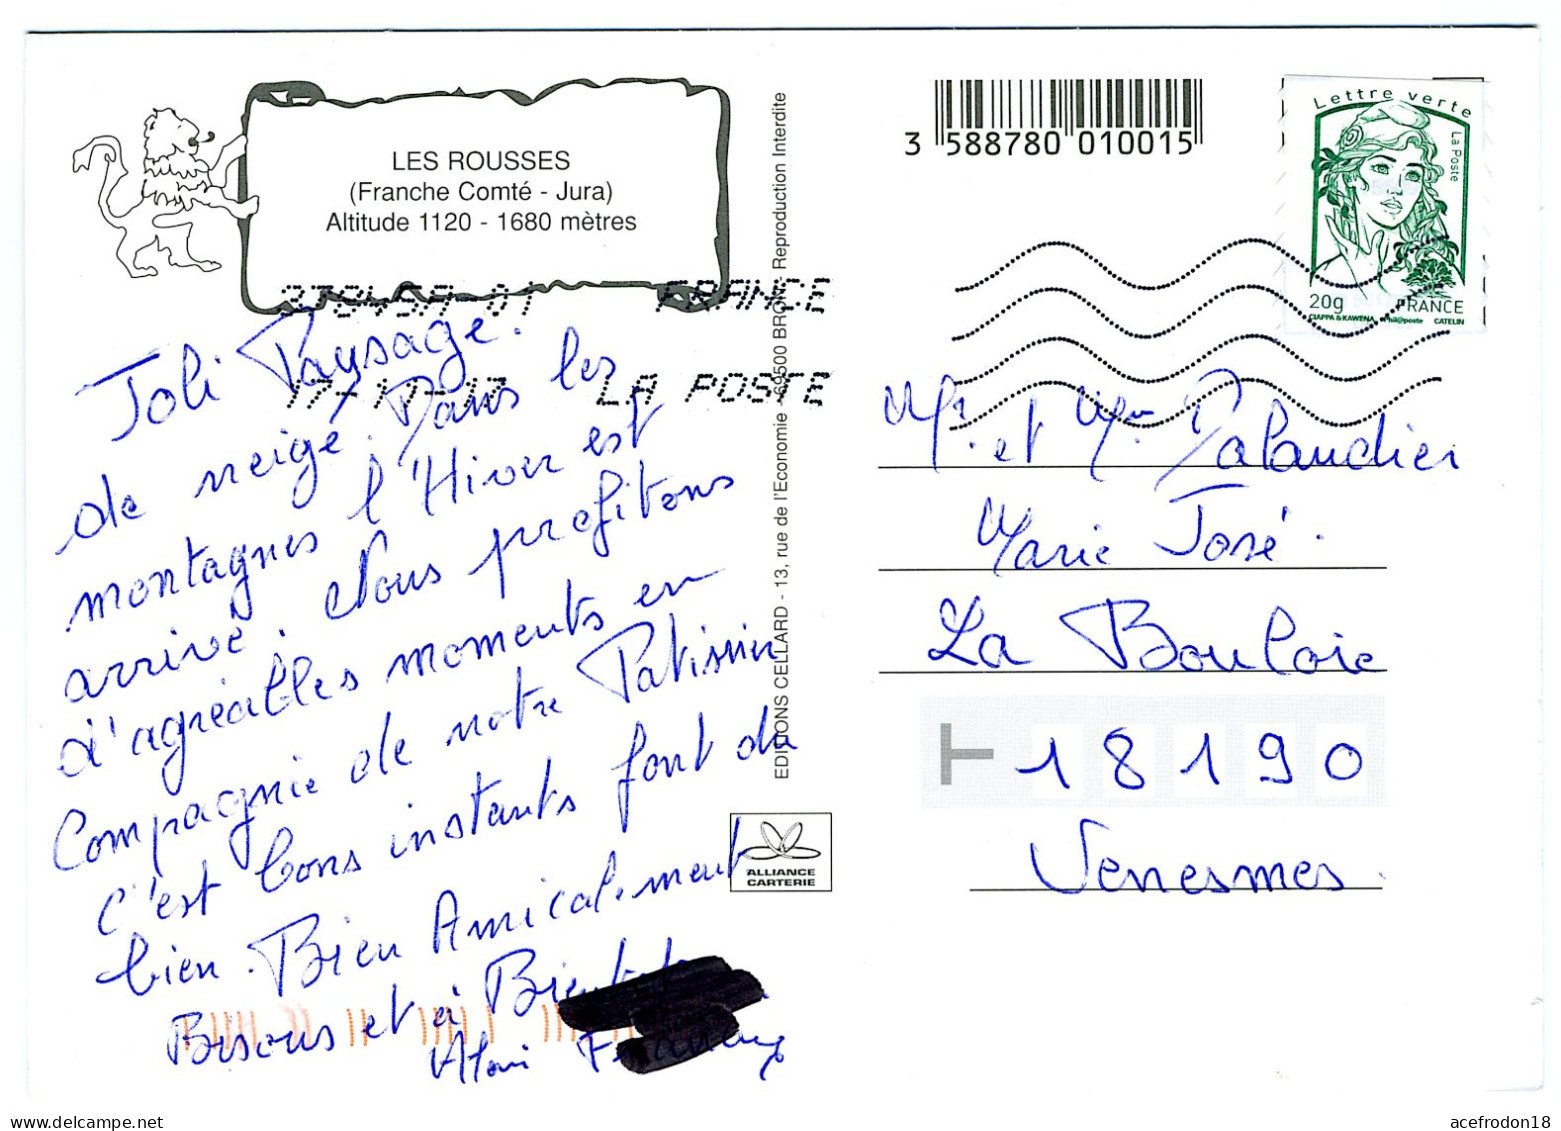 LES ROUSSES
(Franche Comté - Jura)
Altitude 1120 - 1680 mètres
FRANCE
LA POSTE
Joli Paysage
de neige. Dans les
montagnes l'Hiver est
arrivé. Nous profitons
d'agréables moments en
Compagnie de notre
c'est bons instants font du
bien. Bien Amicalement
Bisous et à
EDITIONS CELLARD - 13, rue de l'Economie - 69500 BRON - Reproduction Interdite
ALLIANCE
CARTERIE
3 588780 010015
Lettre verte
La Poste
20g FRANCE
CIAPPA & KAWENA Phil@poste CATELIN
Mr. et Mm Dalaudier
Marie José.
La Bouloie
18190
Venesmes.
acefrodon18